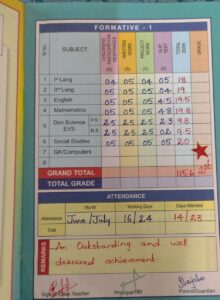 FORMATIVE - 1
Sl.No. SUBJECT CHILDREN PARTICIPATION RESPONSES WRITTEN WORK PROJECT WORK SLIP TEST TOTAL 20M GRADE
(5) (5) (5) (5)
1 Ist Lang 04 05 04 05 18
2 IInd Lang 05 05 05 04 19
3 English 05 05 05 4.5 19.5
4 Mathematics 05 05 05 4.8 19.8
5 Gen.Science EVS P.S 2.5 2.5 2.5 2.3 9.8
B.S 2.5 2.5 2.5 02 9.5
6 Social Studies 05 05 05 05 20
7 GK/Computers
8
GRAND TOTAL 115.6
TOTAL GRADE
ATTENDANCE
Month Working Days Days Attended
Attendance June/July 16/24 14/23
Total
REMARKS An Outstanding and well
deserved achievement.
Sign. of Class Teacher Principal/HM Parent/Guardian